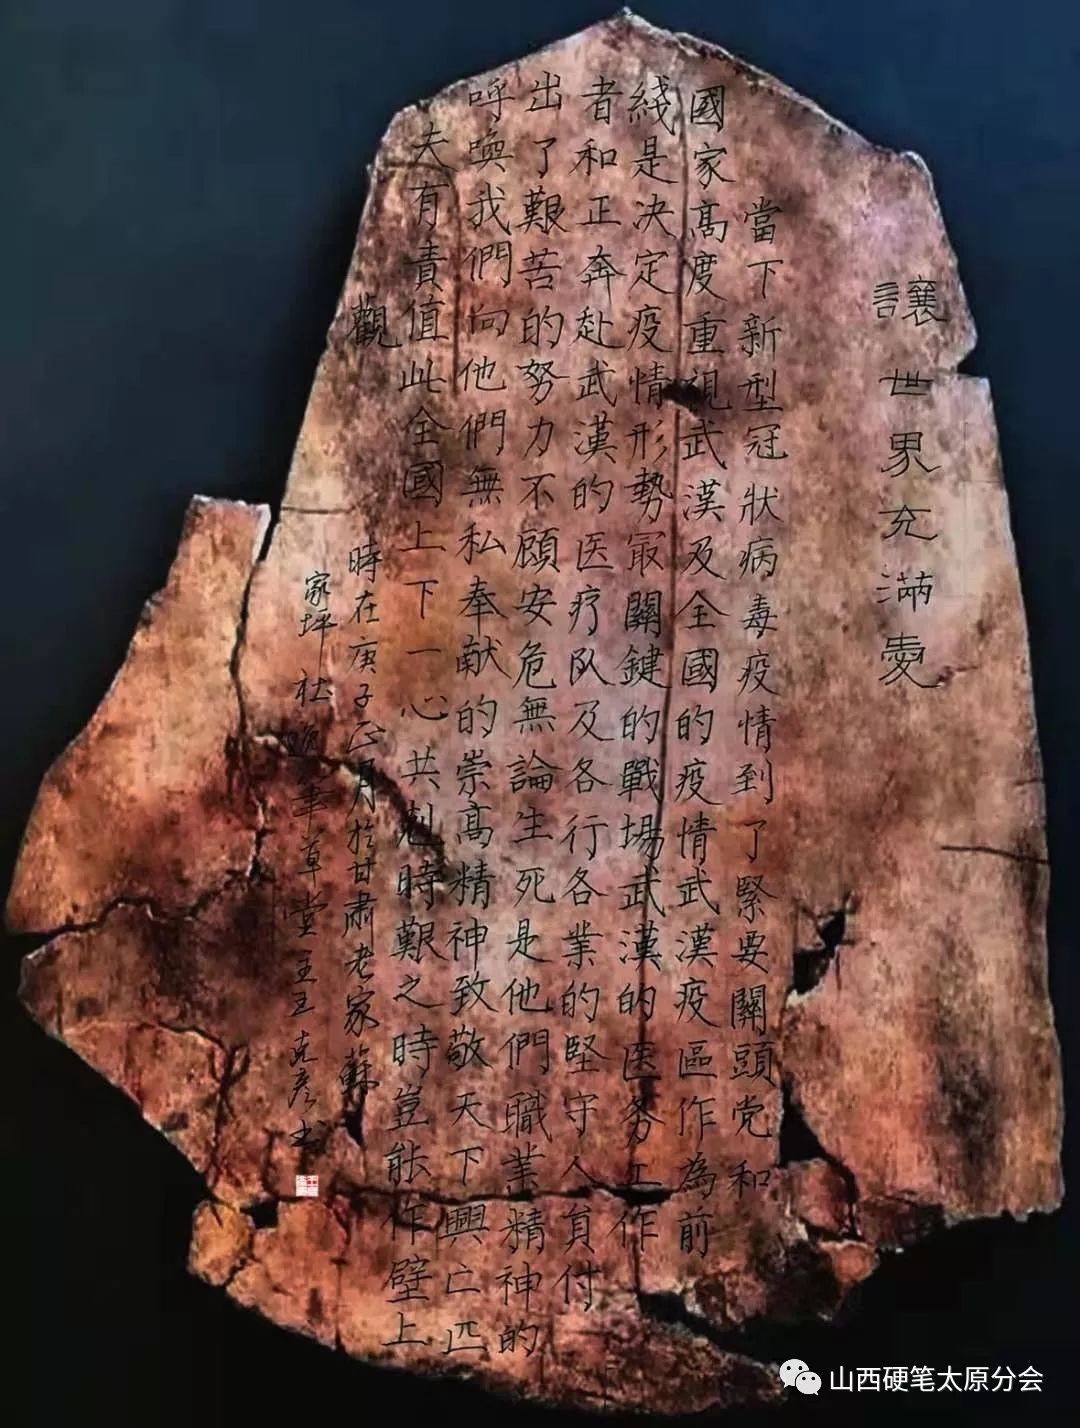 讓世界充滿愛
當下新型冠狀病毒疫情到了緊要關頭党和
國家髙度重視武漢及全國的疫情武漢疫區作為前
綫是决定疫情形勢㝡關鍵的戰場武漢的医务工作
者和正奔赴武漢的医疗队及各行各業的堅守人員付
出了艱苦的努力不顧安危無論生死是他們職業精神的
呼喚我們向他們無私奉献的崇髙精神致敬天下興亡匹
夫有責值此全國上下一心共剋時艱之時豈能作壁上
觀
時在庚子正月於甘肅老家蘇
家坪社草堂主王克彦书
山西硬笔太原分会